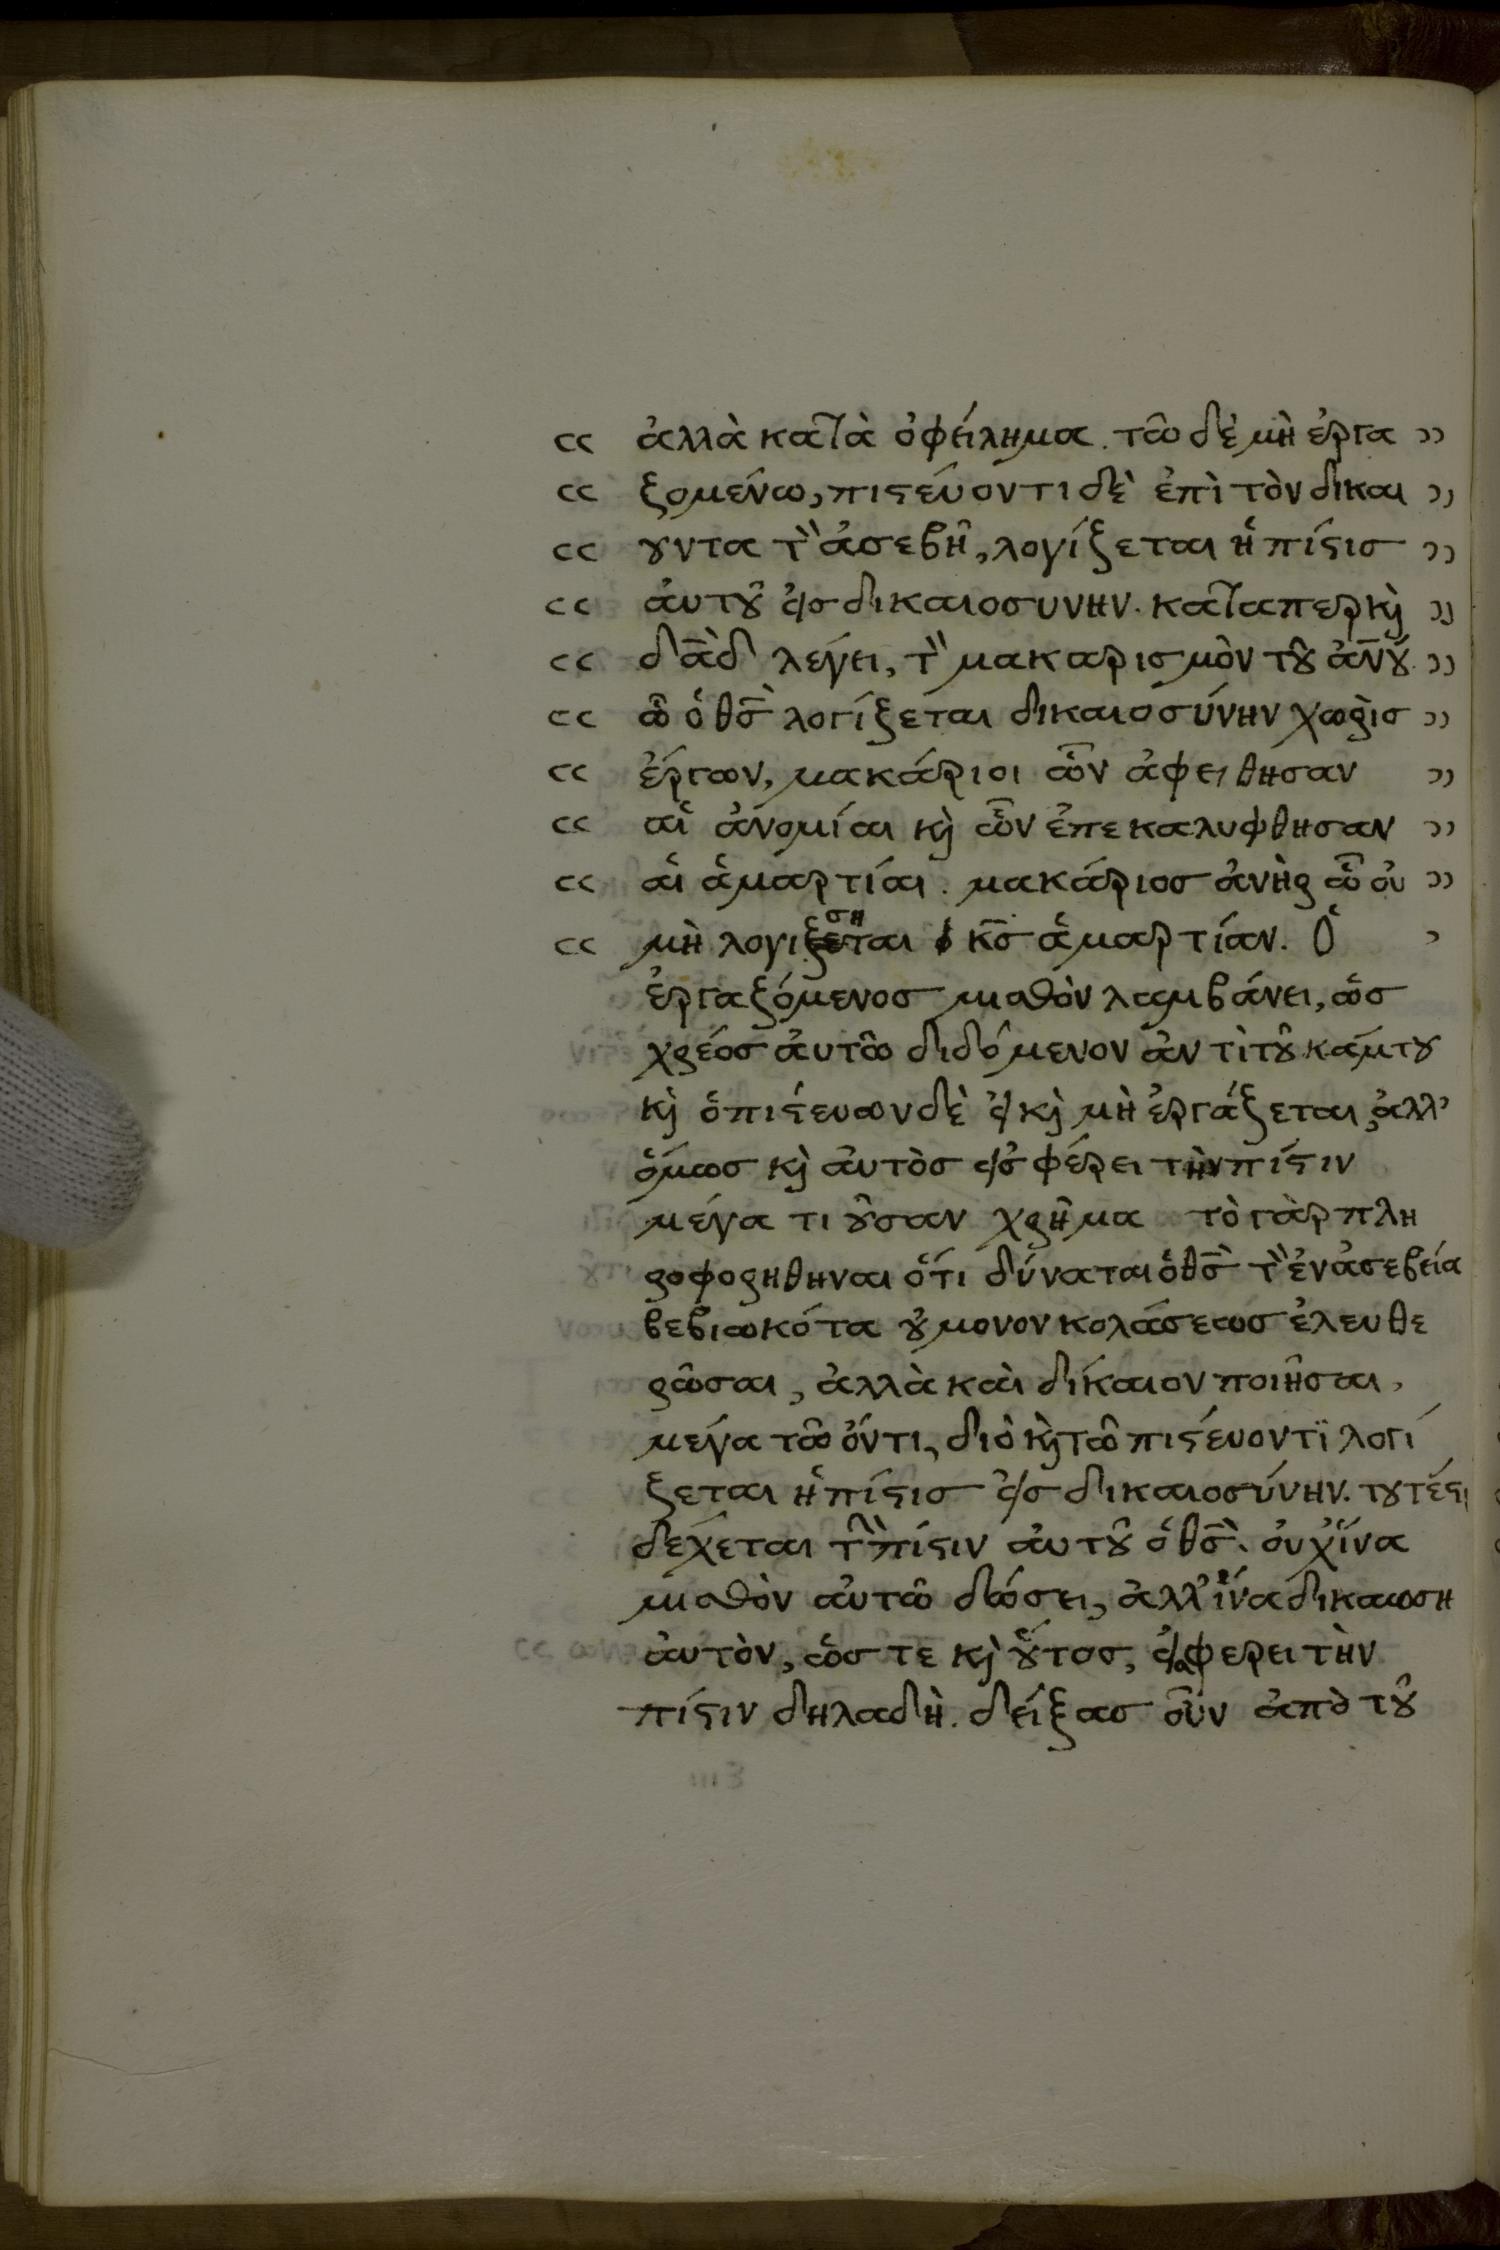 ἀλλὰ κατὰ ὀφείλημα. τῶ δὲ μὴ ἐργα
ζομένω, πιϛεύοντι δὲ ἐπὶ τὸν δικαι
ȣντα τ̀ ἀσεβῆ, λογίζεται ἡ πίϛισ
ἀυτȣ͂ ἐισ δικαιοσυνην. καταπερ κὶ
δᾱδ λέγει, τ̀ μακαρισμὸν τȣ͂ ἀν̅ȣ́
ὧ ὁ θσ̅ λογίζεται δικαιοσύνην χωρὶσ
ἔργων, μακάριοι ὧν ἀφειθησαν
αἱ ἀνομίαι κὶ ὧν ἐπεκαλυφθησαν
αἱ ἁμαρτίαι. μακάριοσ ἀνὴρ ὧ ὀυ
μὴ λογισηται ὁ κσ̅ ἁμαρτίαν. Ὁ
ἐργαζόμενοσ μισθὸν λαμβάνει, ὡσ
χρέοσ ἀυτῶ διδόμενον ἀντὶ τȣ͂ καμτȣ
κὶ ὁ πιϛευων δὲ ἐι κὶ μὴ ἐργάζεται, ἀλλ'
ὅμωσ κὶ ἀυτὸσ ἐισφέρει τὴν πίϛιν
μέγα τι ȣ͂σαν χρῆμα τὸ γὰρ πλη
ροφορηθηναι ὅτι δύναται ὁ θσ̅ τ̀ ἐν ἀσεβεία
βεβιωκότα ȣ̓ μονον κολάσεωσ ἐλευθε
ρῶσαι, ἀλλὰ καὶ δίκαιον ποιῆσαι,
μέγα τῶ ὄντι, διὸ κὶ τῶ πιϛέυοντϊ λογί
ζεται ἡ πίϛισ ἐισ δικαιοσύνην. τȣτέϛι
δέχεται τ̀ πίϛιν ἀυτȣ͂ ὁ θσ̅. ὀυχ ἵνα
μισθὸν ἀυτῶ δώσει, ἀλλ' ἵνα δικαιωση
ἀυτὸν, ὡσ τε κὶ ȣ̔́τοσ, ἐισφερει τὴν
πίϛιν δηλαδὴ. δείξασ οὖν ἀπὸ τȣ͂